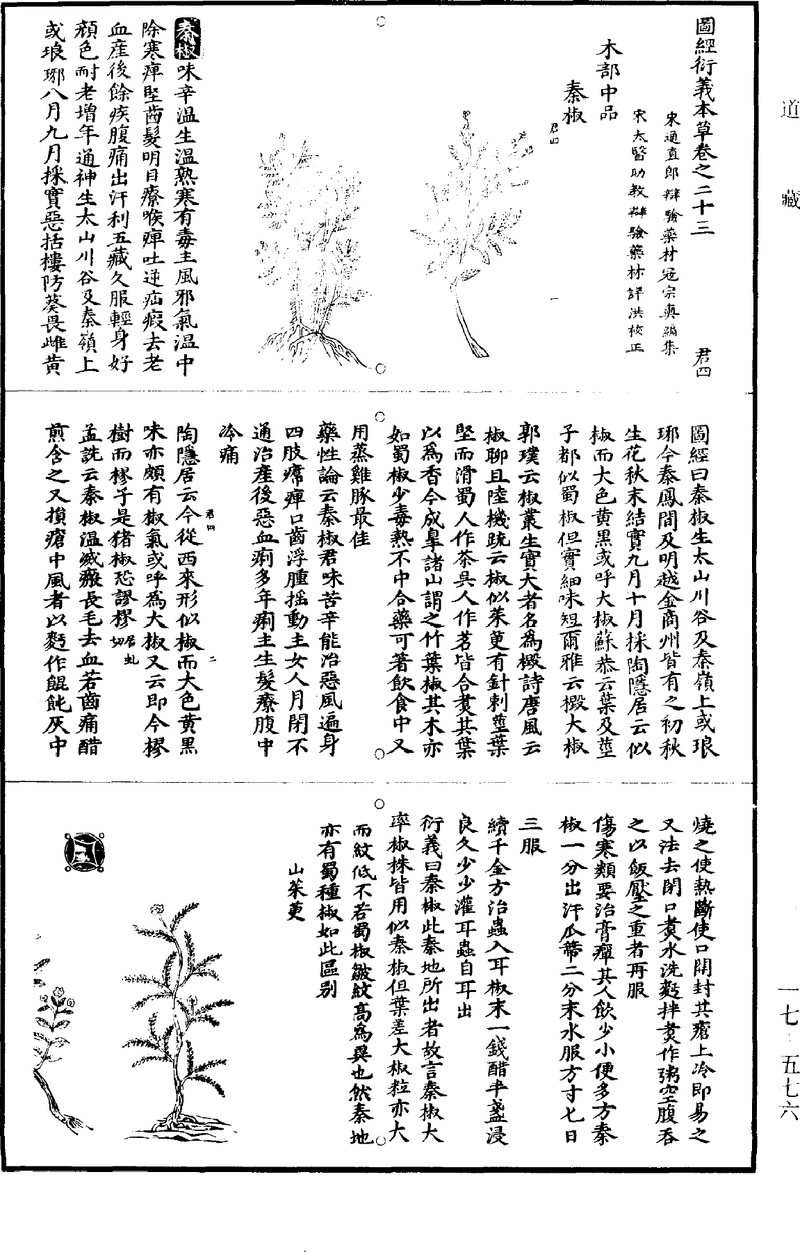 道藏
圖經衍義本草卷之二十三
君四
宋通直郎辯驗藥材寇宗奭編集
宋太醫助教辯驗藥材許洪校正
木部中品
秦椒
君四
一
秦椒味辛溫生溫熟寒有毒主風邪氣溫中
除寒痺堅齒髮明目療喉痺吐逆疝瘕去老
血産後餘疾腹痛出汗利五藏久服輕身好
顔色耐老增年通神生太山川谷及秦嶺上
或琅琊八月九月採實惡括樓防葵畏雌黃
圖經曰秦椒生太山川谷及秦嶺上或琅
琊今秦鳳間及明越金商州皆有之初秋
生花秋末結實九月十月採陶隱居云似
椒而大色黃黑或呼大椒蘇恭云葉及莖
子都似蜀椒但實細味短爾雅云檓大椒
郭璞云椒叢生實大者名爲檓詩唐風云
椒聊且陸機疏云椒似茱萸有針刺莖葉
堅而滑蜀人作茶吳人作茗皆合煑其葉
以爲香今成皐諸山謂之竹葉椒其木亦
如蜀椒少毒熱不中合藥可著飲食中又
用蒸雞豚最佳
藥性論云秦椒君味苦辛能治惡風遍身
四肢𤸷痺口齒浮腫搖動主女人月閉不
通治產後惡血痢多年痢主生髮療腹中
冷痛
君四
二
陶隱居云今從西來形似椒而大色黃黑
味亦頗有椒氣或呼爲大椒又云即今樛
樹而樛子是猪椒恐謬樛居虬切
孟詵云秦椒溫滅瘢長毛去血若齒痛醋
煎含之又損瘡中風者以麪作餛飩灰中
燒之使熱斷使口開封其瘡上冷即易之
又法去閉口煑水洗麪拌煑作粥空腹吞
之以飯壓之重者再服
傷寒類要治膏癉其人飲少小便多方秦
椒一分出汗瓜蔕二分末水服方寸匕日
三服
續千金方治蟲入耳椒末一錢醋半盞浸
良久少少灌耳蟲自耳出
衍義曰秦椒此秦地所出者故言秦椒大
率椒株皆用似秦椒但葉差大椒粒亦大
而紋低不若蜀椒皺紋高爲異也然秦地
亦有蜀種椒如此區別
山茱萸
一七·五七六